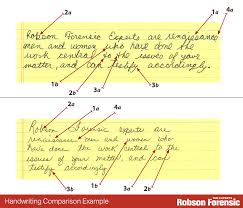 2a 1a 4a
Robson Forensic Experts are renaissance
men and women who have done the
work central to the issues of your
matter, and can testify accordingly.
3b 1b 2b
2a 1a 4a
Robson Forensic experts are
renaissance men and women who
have done the work central to the
issues of your matter, and can
testify accordingly.
1b 3b 2b
Handwriting Comparison Example
Robson Forensic